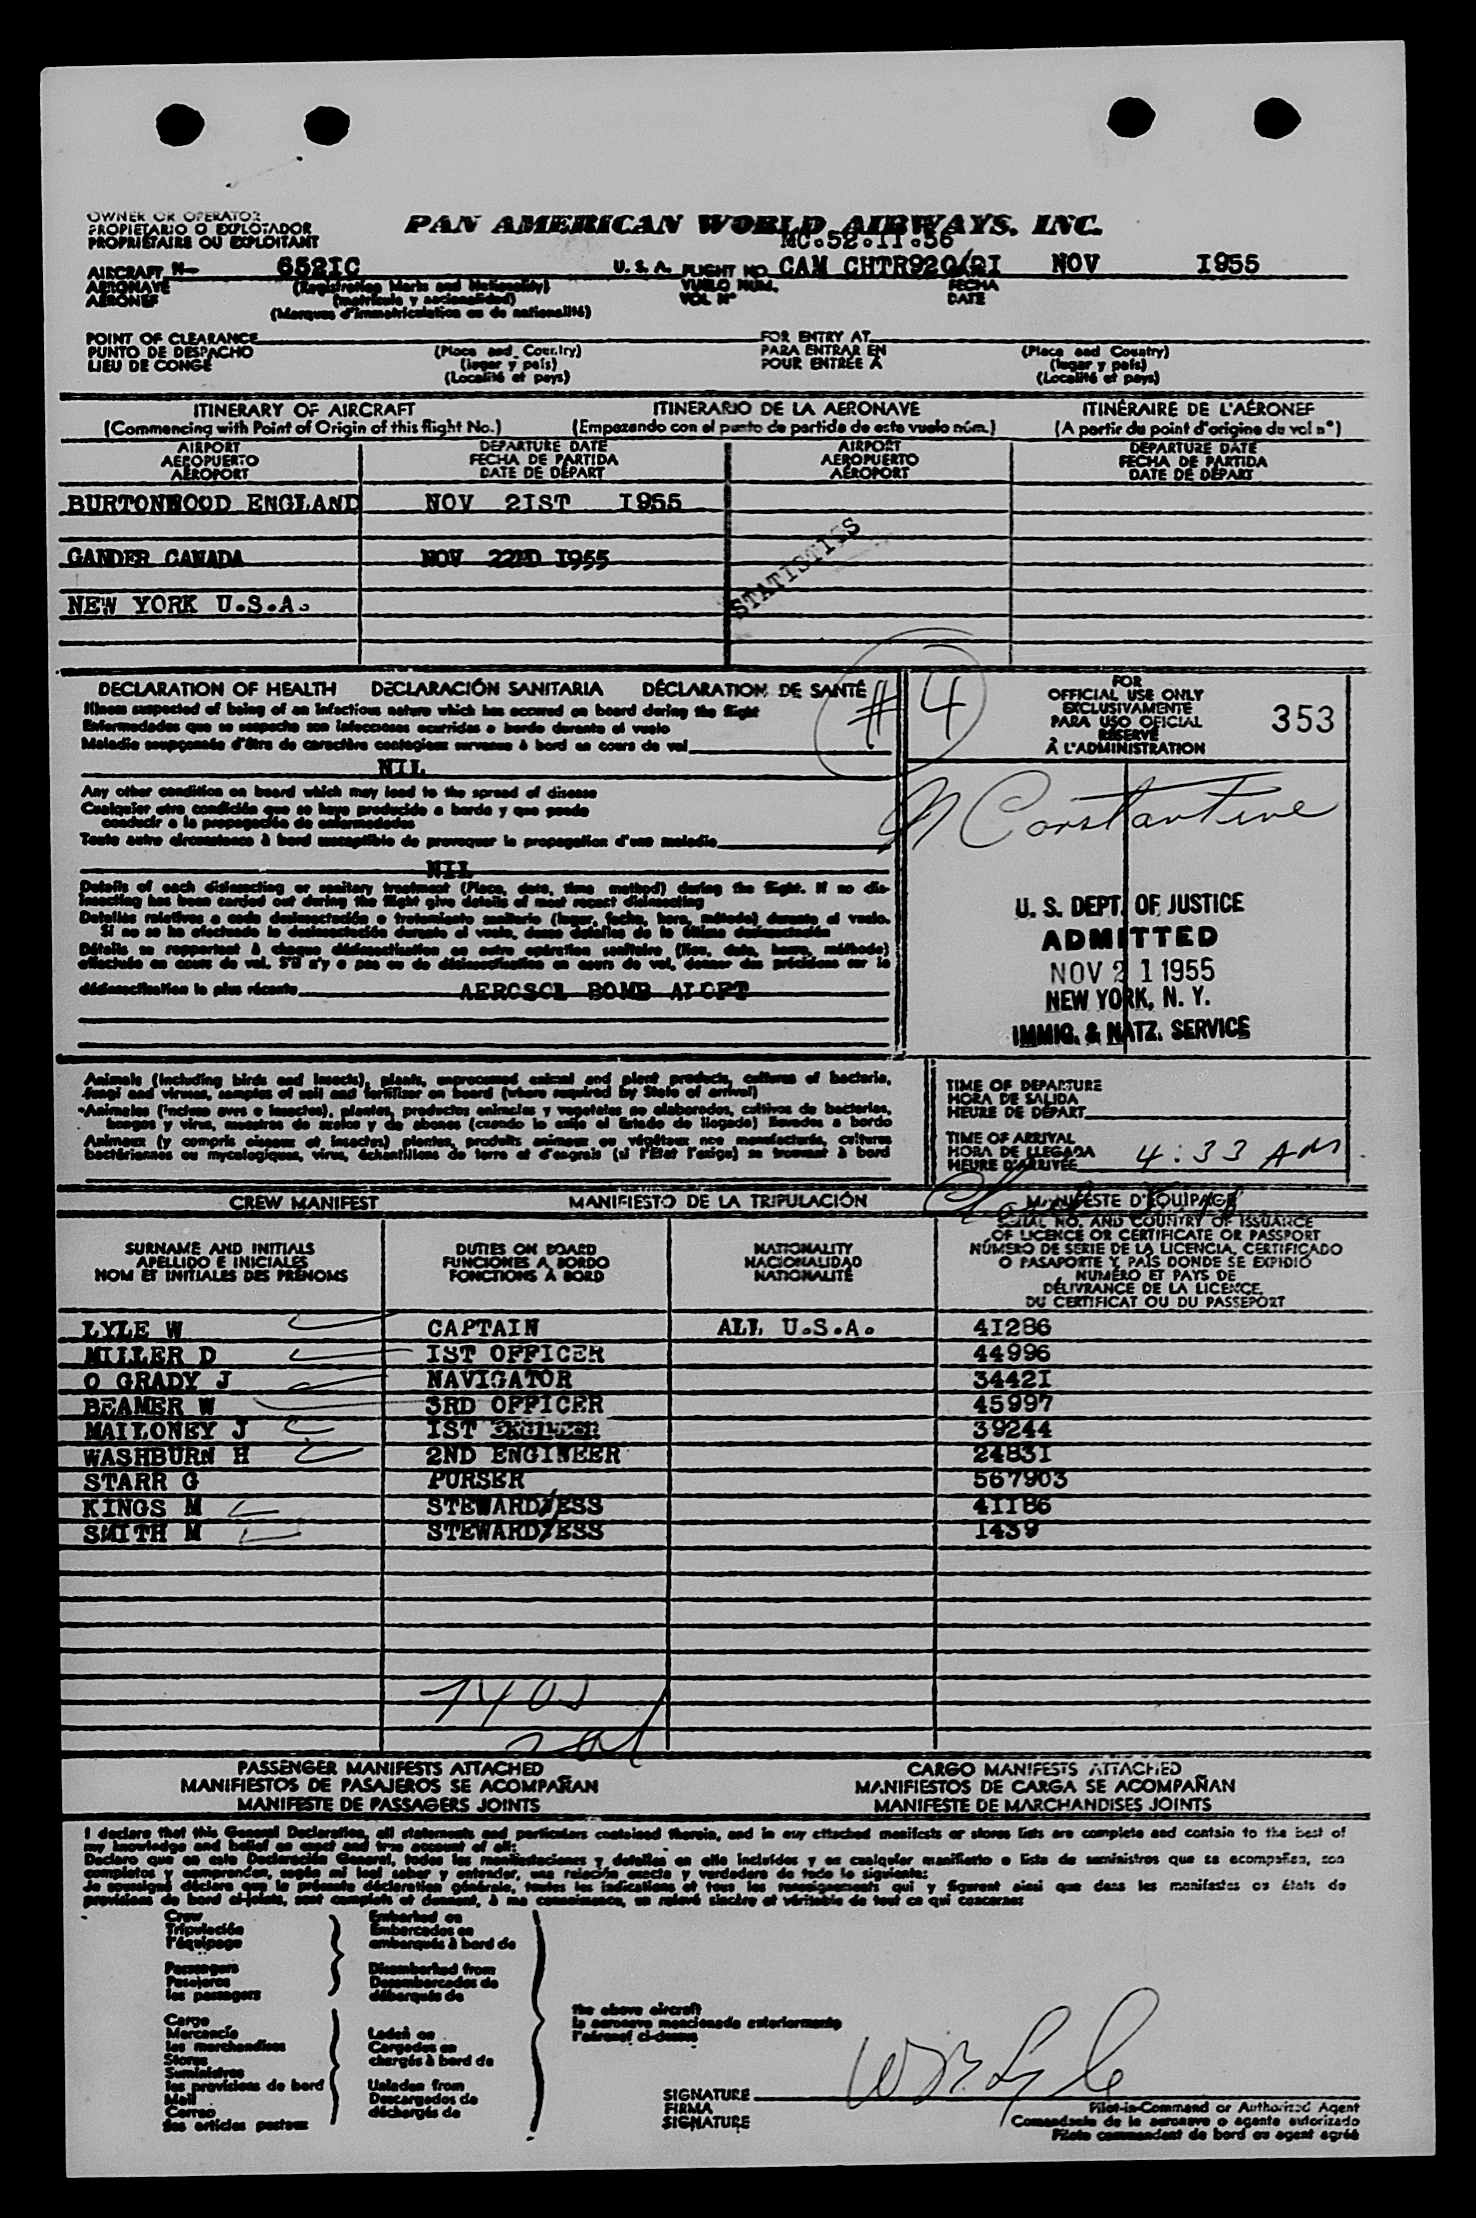 OWNER OR OPERATOR
PROPIETARIO O EXPLOTADOR
PROPRIÉTAIRE OU EXPLOITANT
PAN AMERICAN WORLD AIRWAYS, INC.
MC.52.II.56
AIRCRAFT N- 652IC U. S. A. FLIGHT NO. CAM CHTR920/2I NOV I955
AERONAVE (Registration Marks and Nationality) VUELO NUM. FECHA
AÉRONEF (matrícula y nacionalidad) VOL Nº DATE
(Marques d'immatriculation ou de nationalité)
POINT OF CLEARANCE FOR ENTRY AT
PUNTO DE DESPACHO (Place and Country) PARA ENTRAR EN (Place and Country)
LIEU DE CONGÉ (lugar y país) POUR ENTRÉE À (lugar y país)
(Localité et pays) (Localité et pays)
ITINERARY OF AIRCRAFT ITINERARIO DE LA AERONAVE ITINÉRAIRE DE L'AÉRONEF
(Commencing with Point of Origin of this flight No.) (Empezando con el punto de partida de este vuelo núm.) (A partir du point d'origine du vol nº)
AIRPORT DEPARTURE DATE AIRPORT DEPARTURE DATE
AEROPUERTO FECHA DE PARTIDA AEROPUERTO FECHA DE PARTIDA
AÉROPORT DATE DE DÉPART AÉROPORT DATE DE DÉPART
BURTONWOOD ENGLAND NOV 2IST I955
GANDER CANADA NOV 22ND I955
NEW YORK U.S.A.
STATISTICS
DECLARATION OF HEALTH DECLARACIÓN SANITARIA DÉCLARATION DE SANTÉ
# 4
Illness suspected of being of an infectious nature which has occured on board during the flight
Enfermedades que se sospecha son infecciosas ocurridas a bordo durante el vuelo
Maladie soupçonnée d'être de caractère contagieux survenue à bord en cours de vol
NIL
Any other condition on board which may lead to the spread of disease
Cualquier otra condición que se haya producido a bordo y que pueda
conducir a la propagación de enfermedades
Toute autre circonstance à bord susceptible de provoquer la propagation d'une maladie
NIL
Details of each disinsecting or sanitary treatment (Place, date, time method) during the flight. If no dis-
insecting has been carried out during the flight give details of most recent disinsecting
Detalles relativos a cada desinsectación o tratamiento sanitario (lugar, fecha, hora, método) durante el vuelo.
Si no se ha efectuado la desinsectación durante el vuelo, dense detalles de la última desinsectación
Détails se rapportant à chaque désinsectisation ou autre opération sanitaire (lieu, date, heure, méthode)
effectuée en cours de vol. S'il n'y a pas eu de désinsectisation en cours de vol, donner des précisions sur la
désinsectisation la plus récente AEROSOL BOMB ALOFT
FOR
OFFICIAL USE ONLY
EXCLUSIVAMENTE
PARA USO OFICIAL
RÉSERVÉ
À L'ADMINISTRATION
353
M Constantine
U. S. DEPT. OF JUSTICE
ADMITTED
NOV 2 1 1955
NEW YORK, N. Y.
IMMIG. & NATZ. SERVICE
Animals (including birds and insects), plants, unprocessed animal and plant products, cultures of bacteria,
fungi and viruses, samples of soil and fertilizer on board (where required by State of arrival)
Animales (incluso aves e insectos), plantas, productos animales y vegetales no elaborados, cultivos de bacterias,
hongos y virus, muestras de suelos y de abonos (cuando lo exija el Estado de llegada) llevados a bordo
Animaux (y compris oiseaux et insectes) plantes, produits animaux ou végétaux non manufacturés, cultures
bactériennes ou mycologiques, virus, échantillons de terre et d'engrais (si l'État l'exige) se trouvant à bord
TIME OF DEPARTURE
HORA DE SALIDA
HEURE DE DÉPART
TIME OF ARRIVAL
HORA DE LLEGADA
HEURE D'ARRIVÉE 4:33 AM
CREW MANIFEST MANIFIESTO DE LA TRIPULACIÓN MANIFESTE D'ÉQUIPAGE
SURNAME AND INITIALS DUTIES ON BOARD NATIONALITY SERIAL NO. AND COUNTRY OF ISSUANCE
APELLIDO E INICIALES FUNCIONES A BORDO NACIONALIDAD OF LICENCE OR CERTIFICATE OR PASSPORT
NOM ET INITIALES DES PRÉNOMS FONCTIONS À BORD NATIONALITÉ NÚMERO DE SERIE DE LA LICENCIA, CERTIFICADO
O PASAPORTE Y PAÍS DONDE SE EXPIDIÓ
NUMÉRO ET PAYS DE
DÉLIVRANCE DE LA LICENCE,
DU CERTIFICAT OU DU PASSEPORT
LYLE W CAPTAIN ALL U.S.A. 4I286
MILLER D IST OFFICER 44996
O GRADY J NAVIGATOR 3442I
BEAMER W 3RD OFFICER 45997
MAILONEY J IST ENGINEER 39244
WASHBURN H 2ND ENGINEER 2483I
STARR G PURSER 567903
KINGS M STEWARD/ESS 4II86
SMITH M STEWARD/ESS I439
PASSENGER MANIFESTS ATTACHED CARGO MANIFESTS ATTACHED
MANIFIESTOS DE PASAJEROS SE ACOMPAÑAN MANIFIESTOS DE CARGA SE ACOMPAÑAN
MANIFESTE DE PASSAGERS JOINTS MANIFESTE DE MARCHANDISES JOINTS
I declare that this General Declaration, all statements and particulars contained therein, and in any attached manifests or stores lists are complete and contain to the best of
my knowledge and belief an exact and true account of all:
Declaro que en esta Declaración General, todas las manifestaciones y detalles en ella incluídos y en cualquier manifiesto o lista de suministros que se acompañan, son
completos y comprenden, según mi leal saber y entender, una relación exacta y verdadera de todo lo siguiente:
Je soussigné déclare que la présente déclaration générale, toutes les indications et tous les renseignements qui y figurent ainsi que dans les manifestes ou états de
provisions de bord ci-joints, sont complets et donnent, à ma connaissance, un relevé sincère et véritable de tout ce qui concerne:
Crew Embarked on
Tripulación Embarcados en
l'équipage embarqués à bord de
Passengers Disembarked from
Pasajeros Desembarcados de
les passagers débarqués de
the above aircraft
la aeronave mencionada anteriormente
l'aéronef ci-dessus
Cargo
Mercancía Laden on
les marchandises Cargados en
Stores chargés à bord de
Suministros
les provisions de bord Unladen from
Mail Descargados de
Correo déchargés de
les articles postaux
SIGNATURE
FIRMA
SIGNATURE
W Lyle
Pilot-in-Command or Authorized Agent
Comandante de la aeronave o agente autorizado
Pilote commandant de bord ou agent agréé